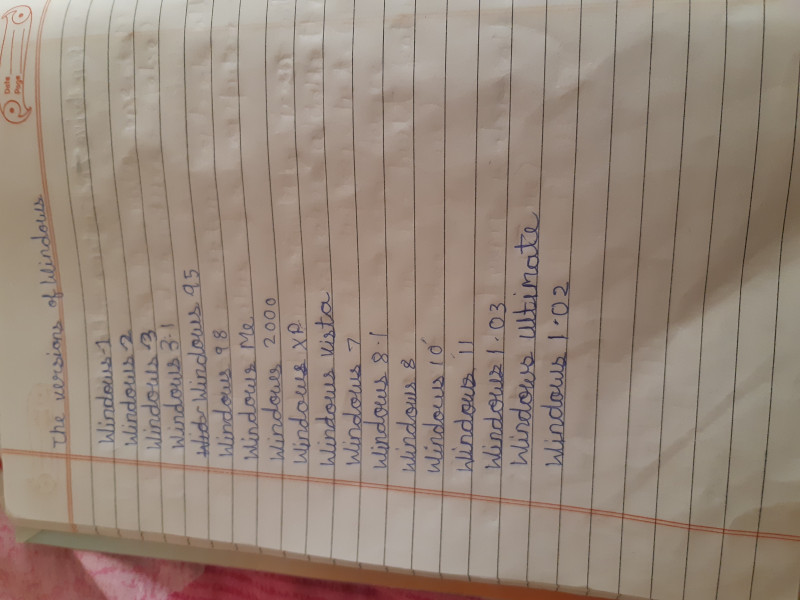 Date
Page
The versions of Windows
Windows-1
Windows-2
Windows-3
Windows 3.1
Windows 95
Windows 98
Windows Me
Windows 2000
Windows XP
Windows Vista
Windows 7
Windows 8.1
Windows 8
Windows 10
Windows 11
Windows 1.03
Windows Ultimate
Windows 1.02